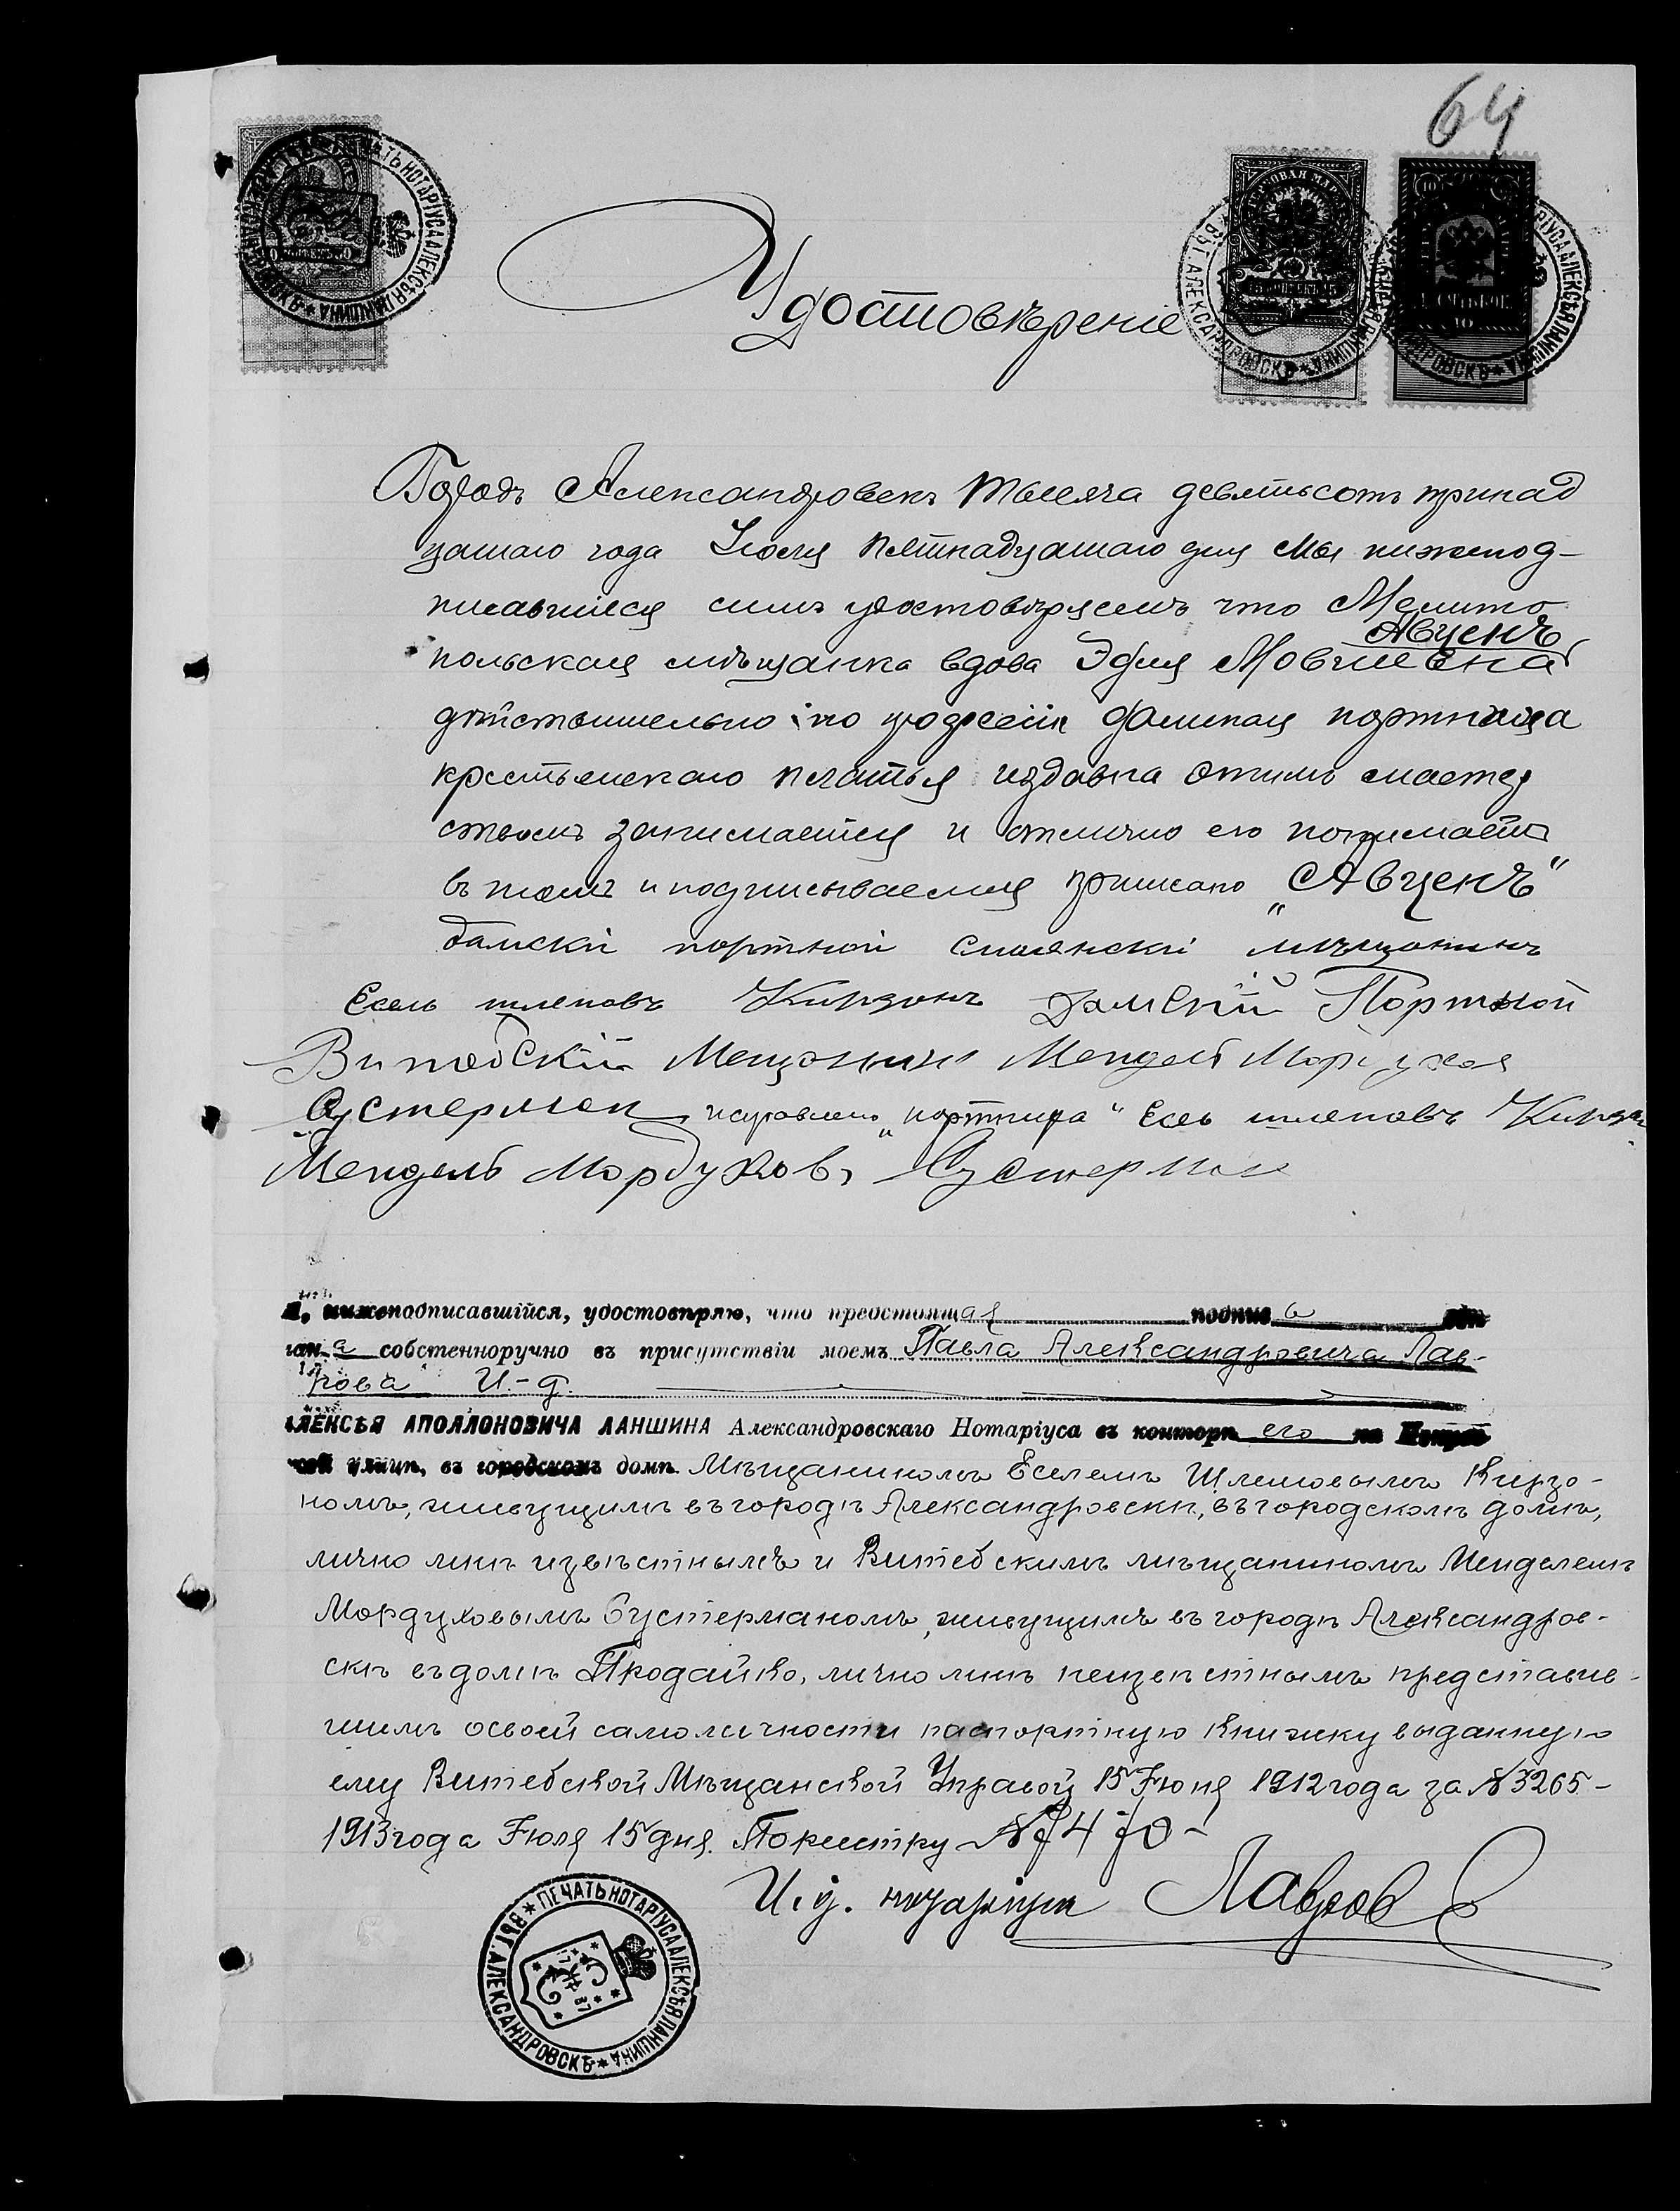 64
Удостовѣреніе
Городъ Александровскъ тысяча девятьсотъ тринад
цатаго года Іюля пятнадцатаго дня мы нижепод-
писавшіеся симъ удостовѣряемъ что Мелито
Авценъ
польская мѣщанка вдова Эфля Мовшевна
дѣйствительно по профессіи дамская портниха
крестьянскаго платья издавна этимъ мастер
ствомъ занимается и отлично его понимаетъ
въ томъ и подписываемся приписано „Авценъ“
дамскій портной мѣщанинъ
Есель шлемовъ Кирзонъ Дамскій Портной
Витебскій Мещанинъ Мендель
Сустерман исправлено „портниха“ Есель шлемовъ
Мендель Мордуховъ Сустерман
Я, нижеподписавшійся, удостовѣряю, что предстоящая подпись сдѣ
лана собственноручно въ присутствіи моемъ Павла Александровича Лав-
рова И.-д.
АЛЕКСѢЯ АПОЛЛОНОВИЧА ЛАНШИНА Александровскаго Нотаріуса въ конторѣ его на
улицѣ, въ городскомъ домѣ Мѣщаниномъ Еселемъ Шлемовымъ Кирзо-
номъ, живущимъ въ городѣ Александровскѣ, въ городскомъ домѣ,
лично мнѣ извѣстнымъ и Витебскимъ мѣщаниномъ Менделемъ
Мордуховымъ Сустерманомъ, живущимъ въ городѣ Александров-
скѣ въ домѣ Продайко, лично мнѣ неизвѣстнымъ представив-
шимъ о своей самоличности паспортную книжку выданную
ему Витебской Мѣщанской Управой 15 Іюня 1912 года за № 3265-
1913 года Іюля 15 дня. По реестру № 7470-
И. д. нотаріуса Лавров
ПЕЧАТЬ НОТАРІУСА АЛЕКСѢЯ ЛАНШИНА * ВЪ Г. АЛЕКСАНДРОВСКѢ *